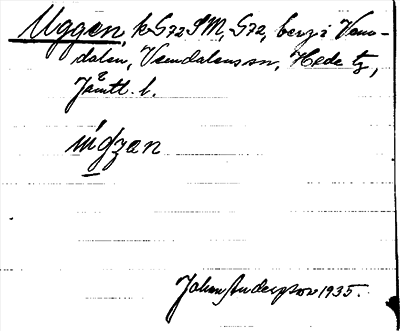 Uggen, k G72 SM, G72, berg i Vem-
dalen, Vemdalens sn, Hede tg,
Jämtl. l.
ùgzen
Johan Anderzon 1935.